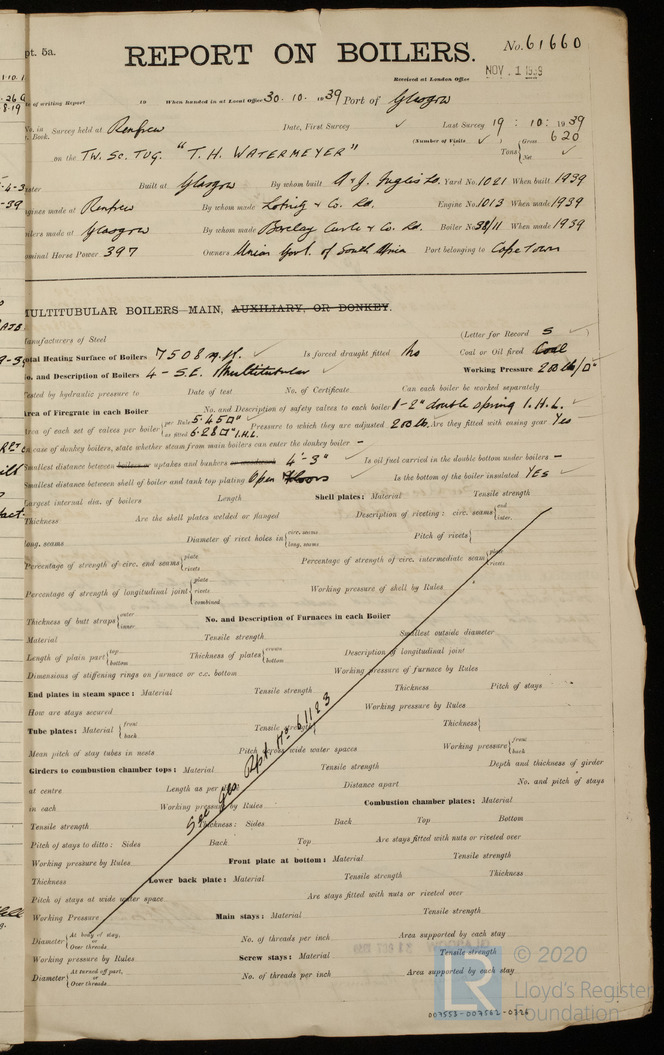 pt. 5a.
REPORT ON BOILERS.
No. 61660
Received at London Office
NOV. 1 1939
of writing Report 19 When handed in at Local Office 30. 10. 1939 Port of Glasgow
No. in Survey held at Renfrew Date, First Survey ✓ Last Survey 19 : 10: 1939
Book.
(Number of Visits ✓ )
on the TW. SC. TUG. "T. H. WATERMEYER" Tons { Gross 620
Net ✓
Built at Glasgow By whom built A & J. Inglis Ld. Yard No. 1021 When built 1939
gines made at Renfrew By whom made Lobnitz & Co. Ld. Engine No. 1013 When made 1939
ilers made at Glasgow By whom made Barclay Curle & Co. Ld. Boiler No. 38/11 When made 1939
ominal Horse Power 397 Owners Union Govt. of South Africa Port belonging to Cape Town
MULTITUBULAR BOILERS MAIN, AUXILIARY, OR DONKEY.
anufacturers of Steel (Letter for Record S ✓ )
otal Heating Surface of Boilers 7508 sq. ft. ✓ Is forced draught fitted No Coal or Oil fired Coal
o. and Description of Boilers 4 - S.E. Multitubular ✓ Working Pressure 200 lb/□"
ested by hydraulic pressure to Date of test No. of Certificate Can each boiler be worked separately
rea of Firegrate in each Boiler No. and Description of safety valves to each boiler 1-2" double spring I.H.L. ✓
rea of each set of valves per boiler { per Rule 5.45□" ✓ Pressure to which they are adjusted 200 lb. Are they fitted with easing gear Yes
as fitted 6.28□" I.H.L.
case of donkey boilers, state whether steam from main boilers can enter the donkey boiler -
mallest distance between boilers or uptakes and bunkers or woodwork 4'-3" ✓ Is oil fuel carried in the double bottom under boilers -
mallest distance between shell of boiler and tank top plating Open Floors Is the bottom of the boiler insulated YES ✓
argest internal dia. of boilers Length Shell plates: Material Tensile strength
Thickness Are the shell plates welded or flanged Description of riveting: circ. seams { end
inter.
ong. seams Diameter of rivet holes in { circ. seams
long. seams Pitch of rivets {
Percentage of strength of circ. end seams { plate
rivets Percentage of strength of circ. intermediate seam { plate
rivets
Percentage of strength of longitudinal joint { plate
rivets
combined Working pressure of shell by Rules
Thickness of butt straps { outer
inner No. and Description of Furnaces in each Boiler
Material Tensile strength Smallest outside diameter
Length of plain part { top
bottom Thickness of plates { crown
bottom Description of longitudinal joint
Dimensions of stiffening rings on furnace or c.c. bottom Working pressure of furnace by Rules
End plates in steam space: Material Tensile strength Thickness Pitch of stays
How are stays secured Working pressure by Rules
Tube plates: Material { front
back Tensile strength Thickness {
Mean pitch of stay tubes in nests Pitch across wide water spaces Working pressure { front
back
Girders to combustion chamber tops: Material Tensile strength Depth and thickness of girder
at centre Length as per Distance apart No. and pitch of stays
in each Working pressure by Rules Combustion chamber plates: Material
See Gls. Rpt. No. 61123
Tensile strength Thickness: Sides Back Top Bottom
Pitch of stays to ditto: Sides Back Top Are stays fitted with nuts or riveted over
Working pressure by Rules Front plate at bottom: Material Tensile strength
Thickness Lower back plate: Material Tensile strength Thickness
Pitch of stays at wide water space Are stays fitted with nuts or riveted over
Working Pressure Main stays: Material Tensile strength
Diameter { At body of stay,
or
Over threads No. of threads per inch Area supported by each stay
Working pressure by Rules Screw stays: Material Tensile strength
Diameter { At turned off part,
or
Over threads No. of threads per inch Area supported by each stay
LR
© 2020
Lloyd's Register
Foundation
007553-007562-0326